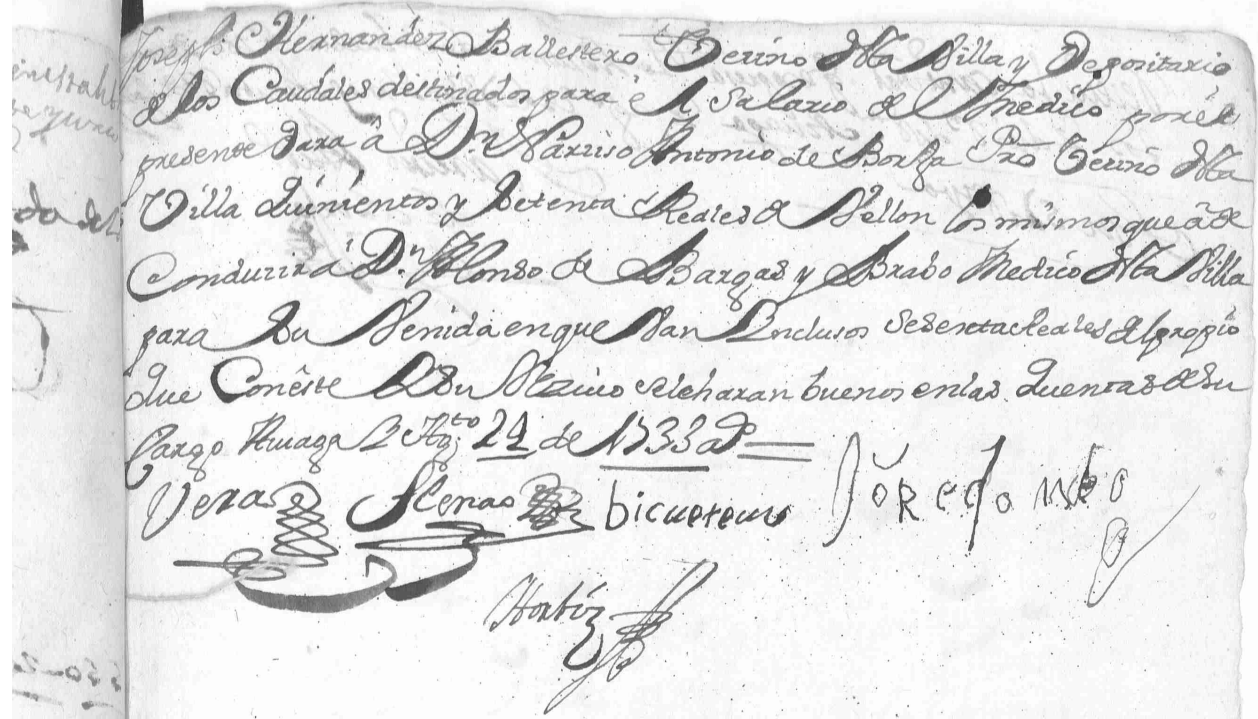 Joseph Hernandez Ballestero Vecino desta Villa y Depositario
de los Caudales destinados para el Salario de Medico por el
presente dara â Dn Narciso Antonio de Borja Pro Vecino desta
Villa quinientos y setenta Reales de Vellon los mismos que â de
Conducir â Dn Alonso de Bargas y Brabo Medico desta Villa
para su Venida en que Van Inclusos sesenta Reales del propio
que Con êste y su Recivo se le haran buenos en las quentas de su
Cargo y Agto 24 de 1733 as
Vera Henao bicueteus
Hortiz